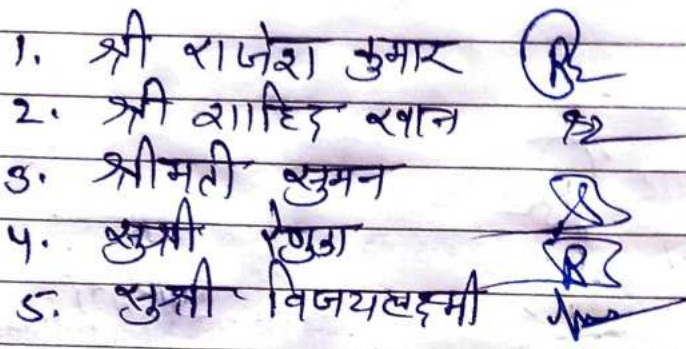 1. श्री राजेश कुमार
2. श्री शाहिद खान
3. श्रीमती सुमन
4. सुश्री रेणुका
5. सुश्री विजयलक्ष्मी